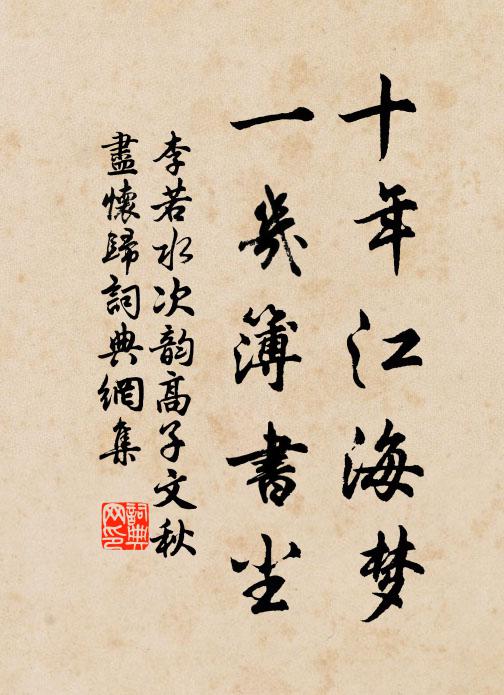 十年江海梦
一几簿书尘
李若水次韵高子文秋
盡懷歸詞典網集
詞典网印